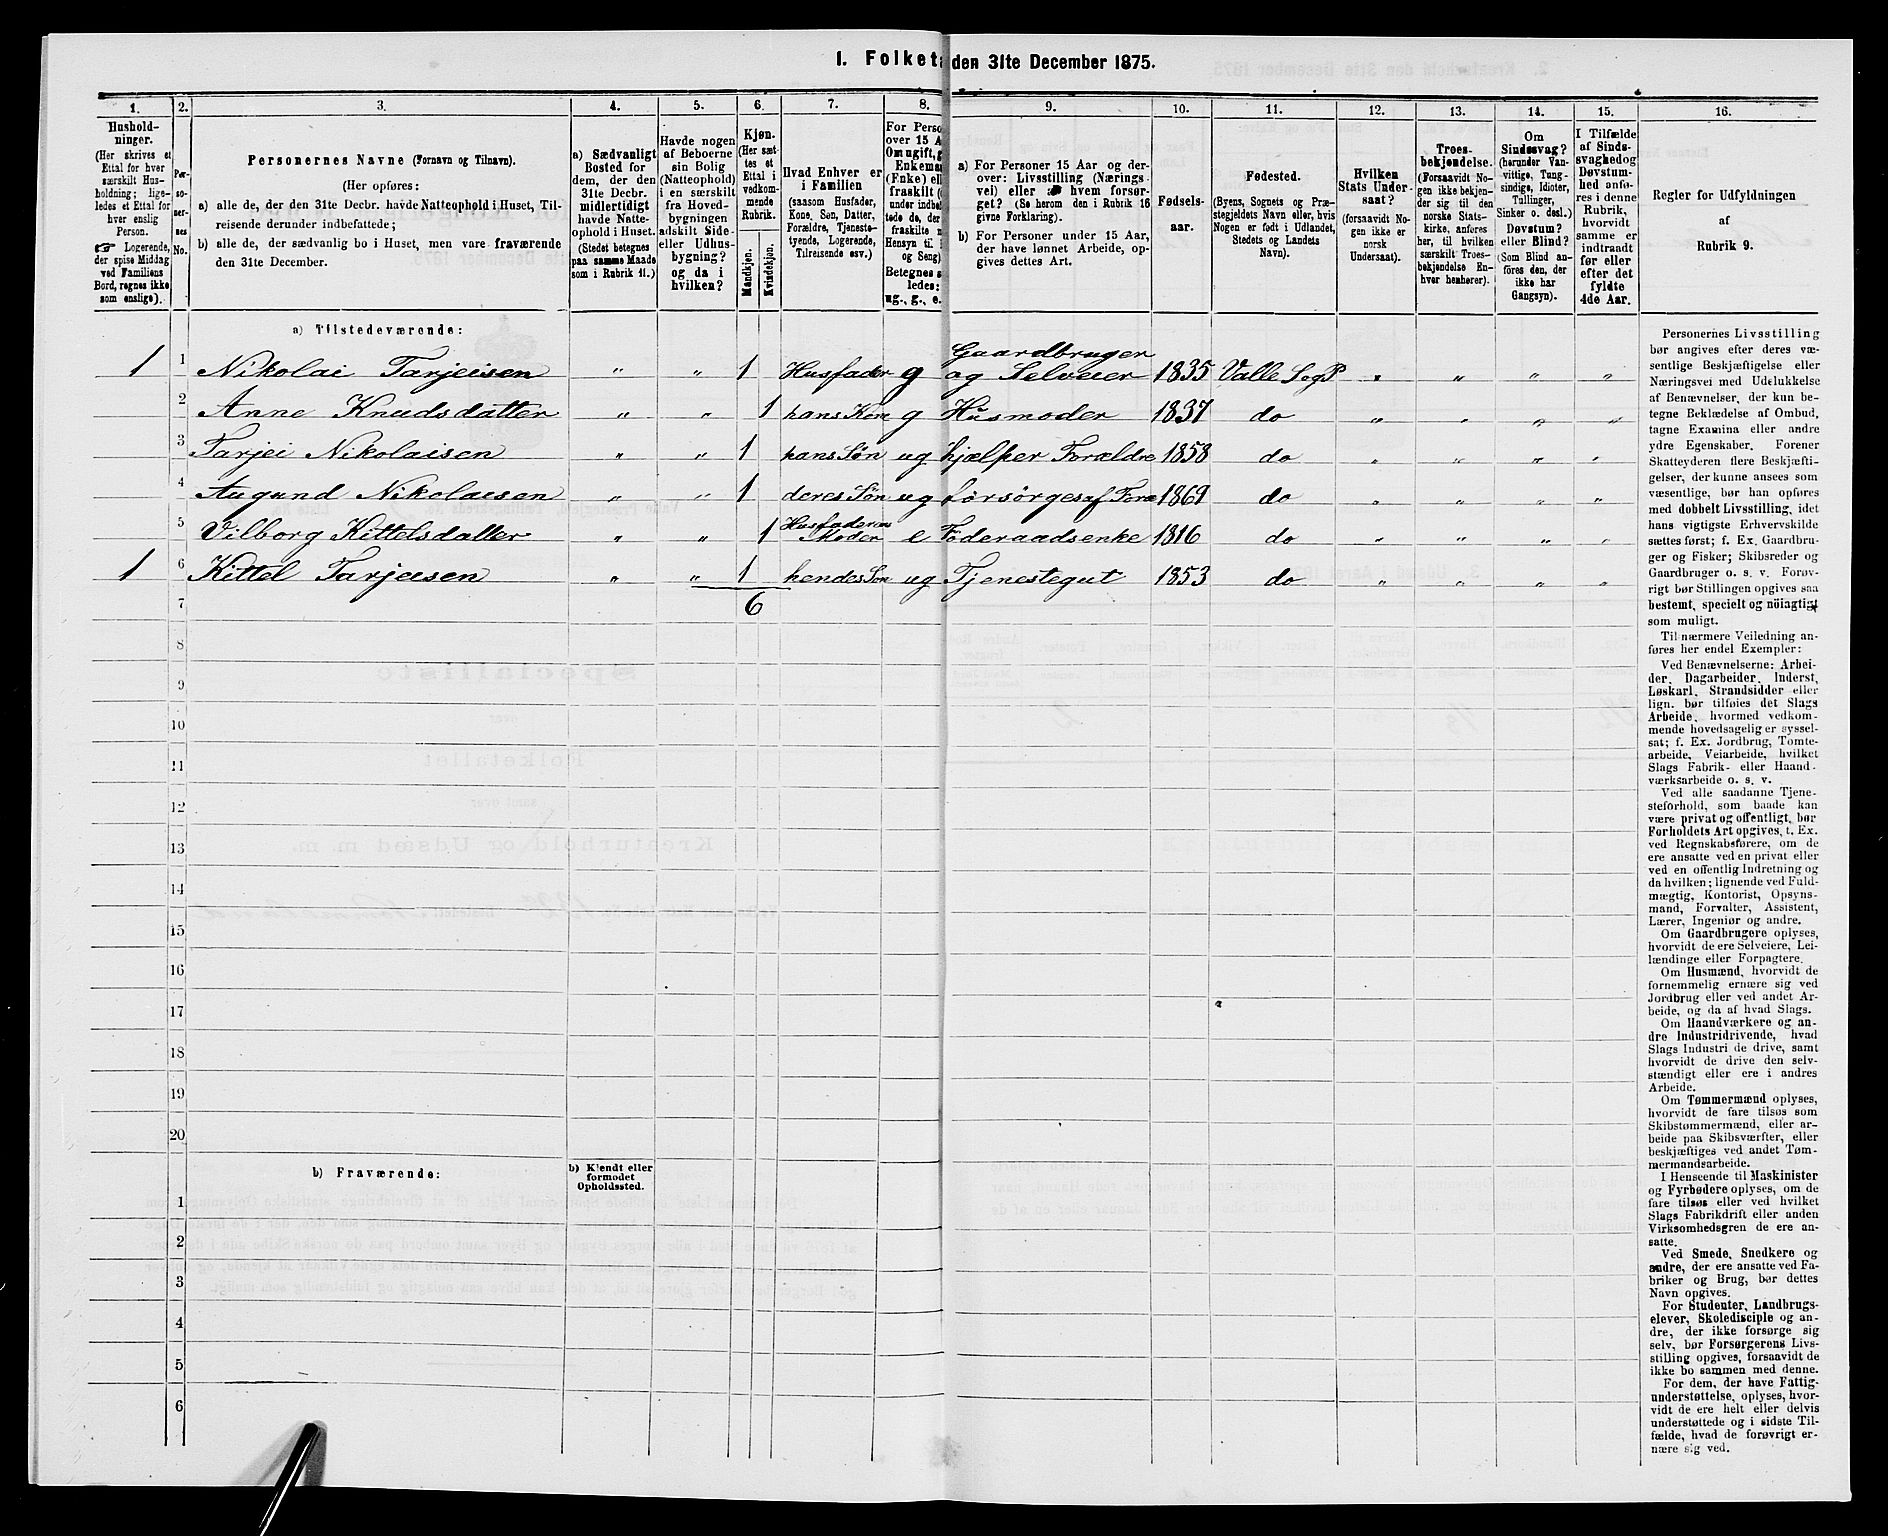 1. Folket den 31te December 1875.
1. 2. 3. 4. 5. 6. 7. 8. 9. 10. 11. 12. 13. 14. 15. 16.
Hushold-
ninger.
(Her skrives et
Ettal for hver
særskilt Hus-
holdning; lige-
ledes et Ettal for
hver enslig
Person.
☞ Logerende,
der spise Middag
ved Familiens
Bord, regnes ikke
som enslige).
Per-
so-
ner-
nes
No.
Personernes Navne (Fornavn og Tilnavn).
(Her opføres:
a) alle de, der den 31te Decbr. havde Natteophold i Huset, Til-
reisende derunder indbefattede;
b) alle de, der sædvanlig bo i Huset, men vare fraværende
den 31te December.
a) Sædvanligt
Bosted for
dem, der den
31te Decbr.
midlertidigt
havde Natte-
ophold i Huset.
(Stedet betegnes
paa samme Maade
som i Rubrik 11.)
Havde nogen
af Beboerne
sin Bolig
(Natteophold)
i en særskilt
fra Hoved-
bygningen
adskilt Side-
eller Udhus-
bygning?
og da i
hvilken?
Kjøn.
(Her sæt-
tes et
Ettal i
vedkom-
mende
Rubrik.
Mandkjøn.
Kvindekjøn.
Hvad Enhver er
i Familien
(saasom Husfader,
Kone, Søn, Datter,
Forældre, Tjeneste-
tyende, Logerende,
Tilreisende osv.)
For Perso
over 15 A
Om ugift, g
Enkema
(Enke) ell
fraskilt (
under indbe
tede de, der
fraskilte
Hensyn til
og Seng)
Betegnes s
ledes:
ug., g., e.
a) For Personer 15 Aar og der-
over: Livsstilling (Nærings-
vei) eller af hvem forsør-
get? (Se herom den i Rubrik 16
givne Forklaring).
b) For Personer under 15 Aar,
der have lønnet Arbeide, op-
gives dettes Art.
Fødsels-
aar.
Fødested.
(Byens, Sognets og Præ-
stegjeldets Navn eller, hvis
Nogen er født i Udlandet,
Stedets og Landets
Navn).
Hvilken
Stats Under-
saat?
(forsaavidt No-
gen ikke er
norsk
Undersaat).
Troes-
bekjendelse.
(Forsaavidt No-
gen ikke bekjen-
der sig til den
norske Stats-
kirke, anføres
her, til hvilken
særskilt Troes-
bekjendelse En-
hver henhører).
Om
Sindssvag?
(herunder Van-
vittige, Tung-
sindige, Idioter,
Tullinger,
Sinker o. desl.)
Døvstum?
eller Blind?
(Som Blind an-
føres den, der
ikke har
Gangsyn).
I Tilfælde
af Sinds-
svaghed og
Døvstum-
hed anfø-
res i denne
Rubrik,
hvorvidt
samme er
indtraadt
før eller
efter det
fyldte
4de Aar.
Regler for Udfyldningen
af
Rubrik 9.
a) Tilstedeværende:
1 1 Nikolai Tarjeisen " " 1 Husfader g Gaardbruger og Selveier 1835 Valle S og P " " " "
2 Anne Knudsdatter " " 1 hans Kone g Husmoder 1837 do " " " "
3 Tarjei Nikolaisen " " 1 hans Søn ug hjælper Forældre 1858 do " " " "
4 Augund Nikolaisen " " 1 deres Søn ug forsørges af Foræ 1869 do " " " "
5 Vilborg Kittelsdatter " " 1 Husfaderens Moder e Føderaadsenke 1816 do " " " "
1 6 Kittel Tarjeisen " " 1 hendes Søn ug Tjenestegut 1853 do " " " "
7 6
8
9
10
11
12
13
14
15
16
17
18
19
20
b) Fraværende: b) Kjendt eller
formodet
Opholdssted.
1
2
3
4
5
6
Personernes Livsstilling
bør angives efter deres væ-
sentlige Beskjæftigelse eller
Næringsvei med Udelukkelse
af Benævnelser, der kun be-
tegne Beklædelse af Ombud,
tagne Examina eller andre
ydre Egenskaber. Forener
Skatteyderen flere Beskjæfti-
gelser, der kunne ansees som
væsentlige, bør han opføres
med dobbelt Livsstilling, idet
hans vigtigste Erhvervskilde
sættes først; f. Ex. Gaardbru-
ger og Fisker; Skibsreder og
Gaardbruger o. s. v. Forøv-
rigt bør Stillingen opgives saa
bestemt, specielt og nøiagtigt
som muligt.
Til nærmere Veiledning an-
føres her endel Exempler:
Ved Benævnelserne: Arbei-
der, Dagarbeider, Inderst,
Løskarl, Strandsidder eller
lign. bør tilføies det Slags
Arbeide, hvormed vedkom-
mende hovedsagelig er syssel-
sat; f. Ex. Jordbrug, Tomte-
arbeide, Veiarbeide, hvilket
Slags Fabrik- eller Haand-
værksarbeide o. s. v.
Ved alle saadanne Tjene-
steforhold, som baade kan
være privat og offentligt, bør
Forholdets Art opgives, t. Ex.
ved Regnskabsførere, om de
ere ansatte ved en privat eller
ved en offentlig Indretning og
da hvilken; lignende ved Fuld-
mægtig, Kontorist, Opsyns-
mand, Forvalter, Assistent,
Lærer, Ingeniør og andre.
Om Gaardbrugere oplyses,
hvorvidt de ere Selveiere, Lei-
lændinge eller Forpagtere.
Om Husmænd, hvorvidt de
fornemmelig ernære sig ved
Jordbrug eller ved andet Ar-
beide, og da af hvad Slags.
Om Haandværkere og an-
dre Industridrivende, hvad
Slags Industri de drive, samt
hvorvidt de drive den selv-
stændigt eller ere i andres
Arbeide.
Om Tømmermænd oplyses,
hvorvidt de fare tilsøs som
Skibstømmermænd, eller ar-
beide paa Skibsværfter, eller
beskjæftiges ved andet Tøm-
mermandsarbeide.
I Henseende til Maskinister
og Fyrbødere oplyses, om de
fare tilsøs eller ved hvilket
Slags Fabrikdrift eller anden
Virksomhedsgren de ere an-
satte.
Ved Smede, Snedkere og
andre, der ere ansatte ved Fa-
briker og Brug, bør dettes
Navn opgives.
For Studenter, Landbrugs-
elever, Skoledisciple og an-
dre, der ikke forsørge sig
selv, bør Forsørgerens Livs-
stilling opgives, forsaavidt de
ikke bo sammen med denne.
For dem, der have Fattig-
understøttelse, oplyses, hvor-
vidt de ere helt eller delvis
understøttede og i sidste Til-
fælde, hvad de forøvrigt er-
nære sig ved.